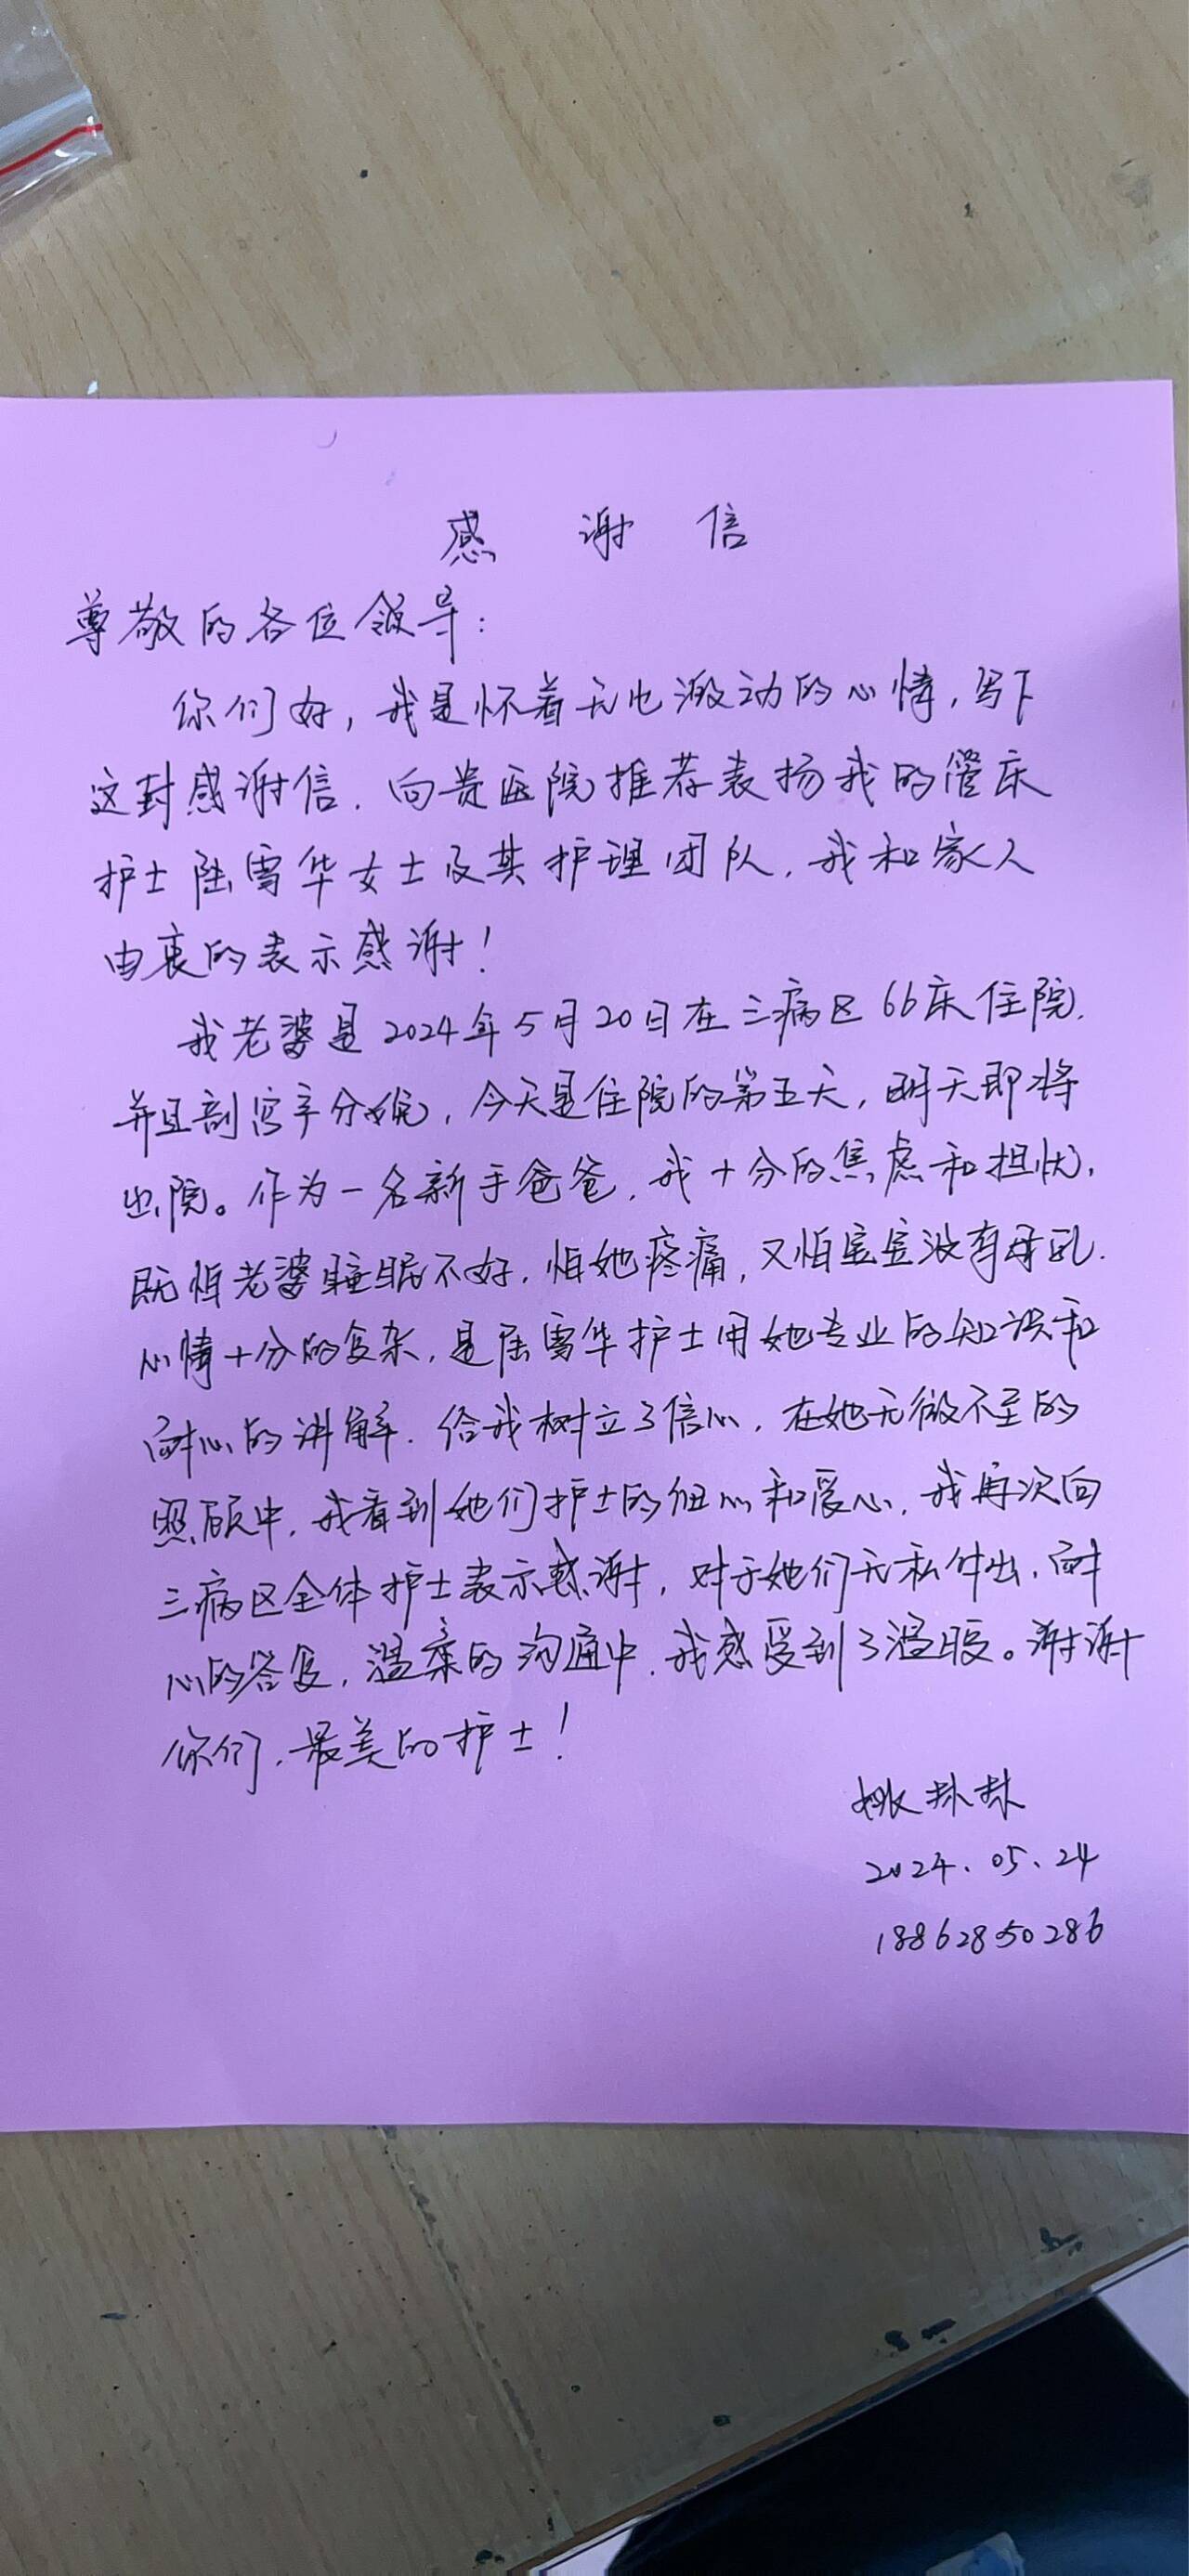 感谢信
尊敬的各位领导：
你们好，我是怀着无比激动的心情，写下
这封感谢信，向贵医院推荐表扬我的管床
护士陆雪华女士及其护理团队，我和家人
由衷的表示感谢！
我老婆是2024年5月20日在三病区66床住院，
并且剖宫产分娩，今天是住院的第五天，明天即将
出院。作为一名新手爸爸，我十分的焦虑和担忧，
既怕老婆睡眠不好，怕她疼痛，又怕宝宝没有母乳，
心情十分的复杂，是雪华护士用她专业的知识和
耐心的讲解，给我树立了信心，在她无微不至的
照顾中，我看到她们护士的细心和爱心，我再次向
三病区全体护士表示感谢，对于她们无私付出，耐
心的答复，温柔的沟通中，我感受到了温暖。谢谢
你们，最美的护士！
姚
2024.05.24
18862850286